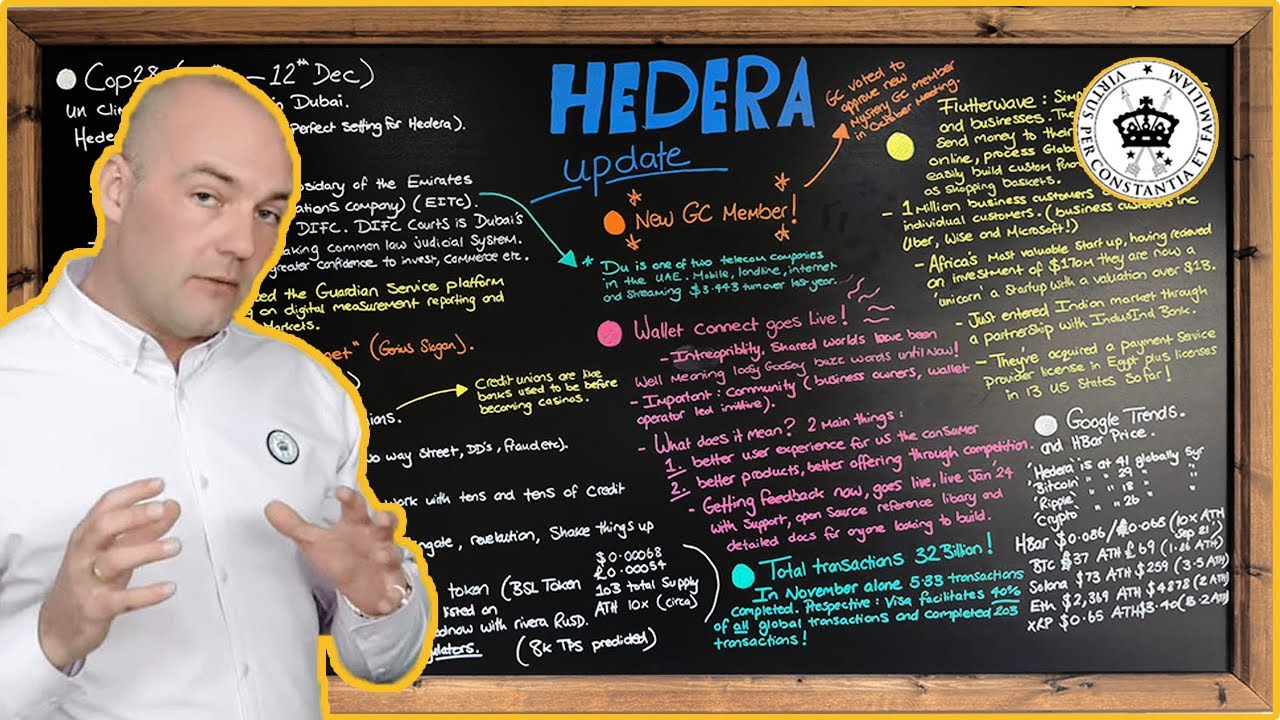 HEDERA
update
Cop28
- 12th Dec)
un Cli
in Dubai.
Hede
Perfect setting for Hedera).
sidary of the Emirates
ations company) (EITC).
DIFC. DIFC Courts is Dubai's
aking common law judicial System.
greater confidence to invest, commerce etc.
ed the Guardian Service platform
on digital measurement reporting and
arkets.
net" (Genius Slogan).
Credit unions are like
banks used to be before
becoming casinos.
ions.
wo way street, DD's, fraud etc).
work with tens and tens of credit
ngate, revelution, Shake things up
token (BSL Token
listed on
ednow with rivera RUSD.
gulators.
$0.00068
£0.00054
103 total Supply
ATH 10x (circa)
(8k TPS predicted)
New GC Member!
GC voted to
approve new
Mystery GC member
in October Meeting.
* Du is one of two telecom companies
in the UAE. Mobile, landline, internet
and Streaming $3.443 turnover last year.
Wallet Connect goes Live!
- Intreopriblity. Shared worlds have been
Well Meaning
buzz words until Now!
- Important: Community (business owners, wallet
operator led
- What does it mean? 2 Main things:
1. better user experience for us the consumer
2. better products, better offering through competition.
- Getting feedback now, goes live, live Jan '24
with Support, open Source reference libary and
detailed docs for anyone looking to build.
Total transactions 32 Billion!
In November alone 5.83 transactions
completed. Prespective: Visa facilitates 40%
of all global transactions and completed 203
transactions!
Flutterwave: Simp
and businesses. The
Send money to their
online, process Globa
easily build custom
as Shopping baskets.
- 1 Million business customers
individual customers. (business customers inc
Uber, Wise and Microsoft!)
- Africa's Most valuable Start up, having recieved
an investment of $170m they are now a
'unicorn' a Startup with a valuation over $1B.
- Just entered Indian market through
a partnership with IndusInd Bank.
- They're acquired a payment Service
provider license in Egypt plus licenses
in 13 US States Sofar!
Google Trends.
and HBar Price.
'Hedera' is at 41 globally 5yr
'Bitcoin' " 29 " "
'Ripple' " 18 " "
'Crypto' " 26 " "
HBar $0.086/
(10x ATH
Sep 21')
BTC $37 ATH £69 (1.86 ATH)
Solana $73 ATH $259 (3.5 ATH)
Eth $2,369 ATH $4878 (2 ATH)
XRP $0.65 ATH $3.40 (5.2 ATH)
VIRTUS PER CONSTANTIA ET FAMILIAM